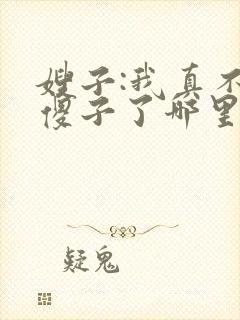 嫂子:我真不
傻子了哪里
疑鬼